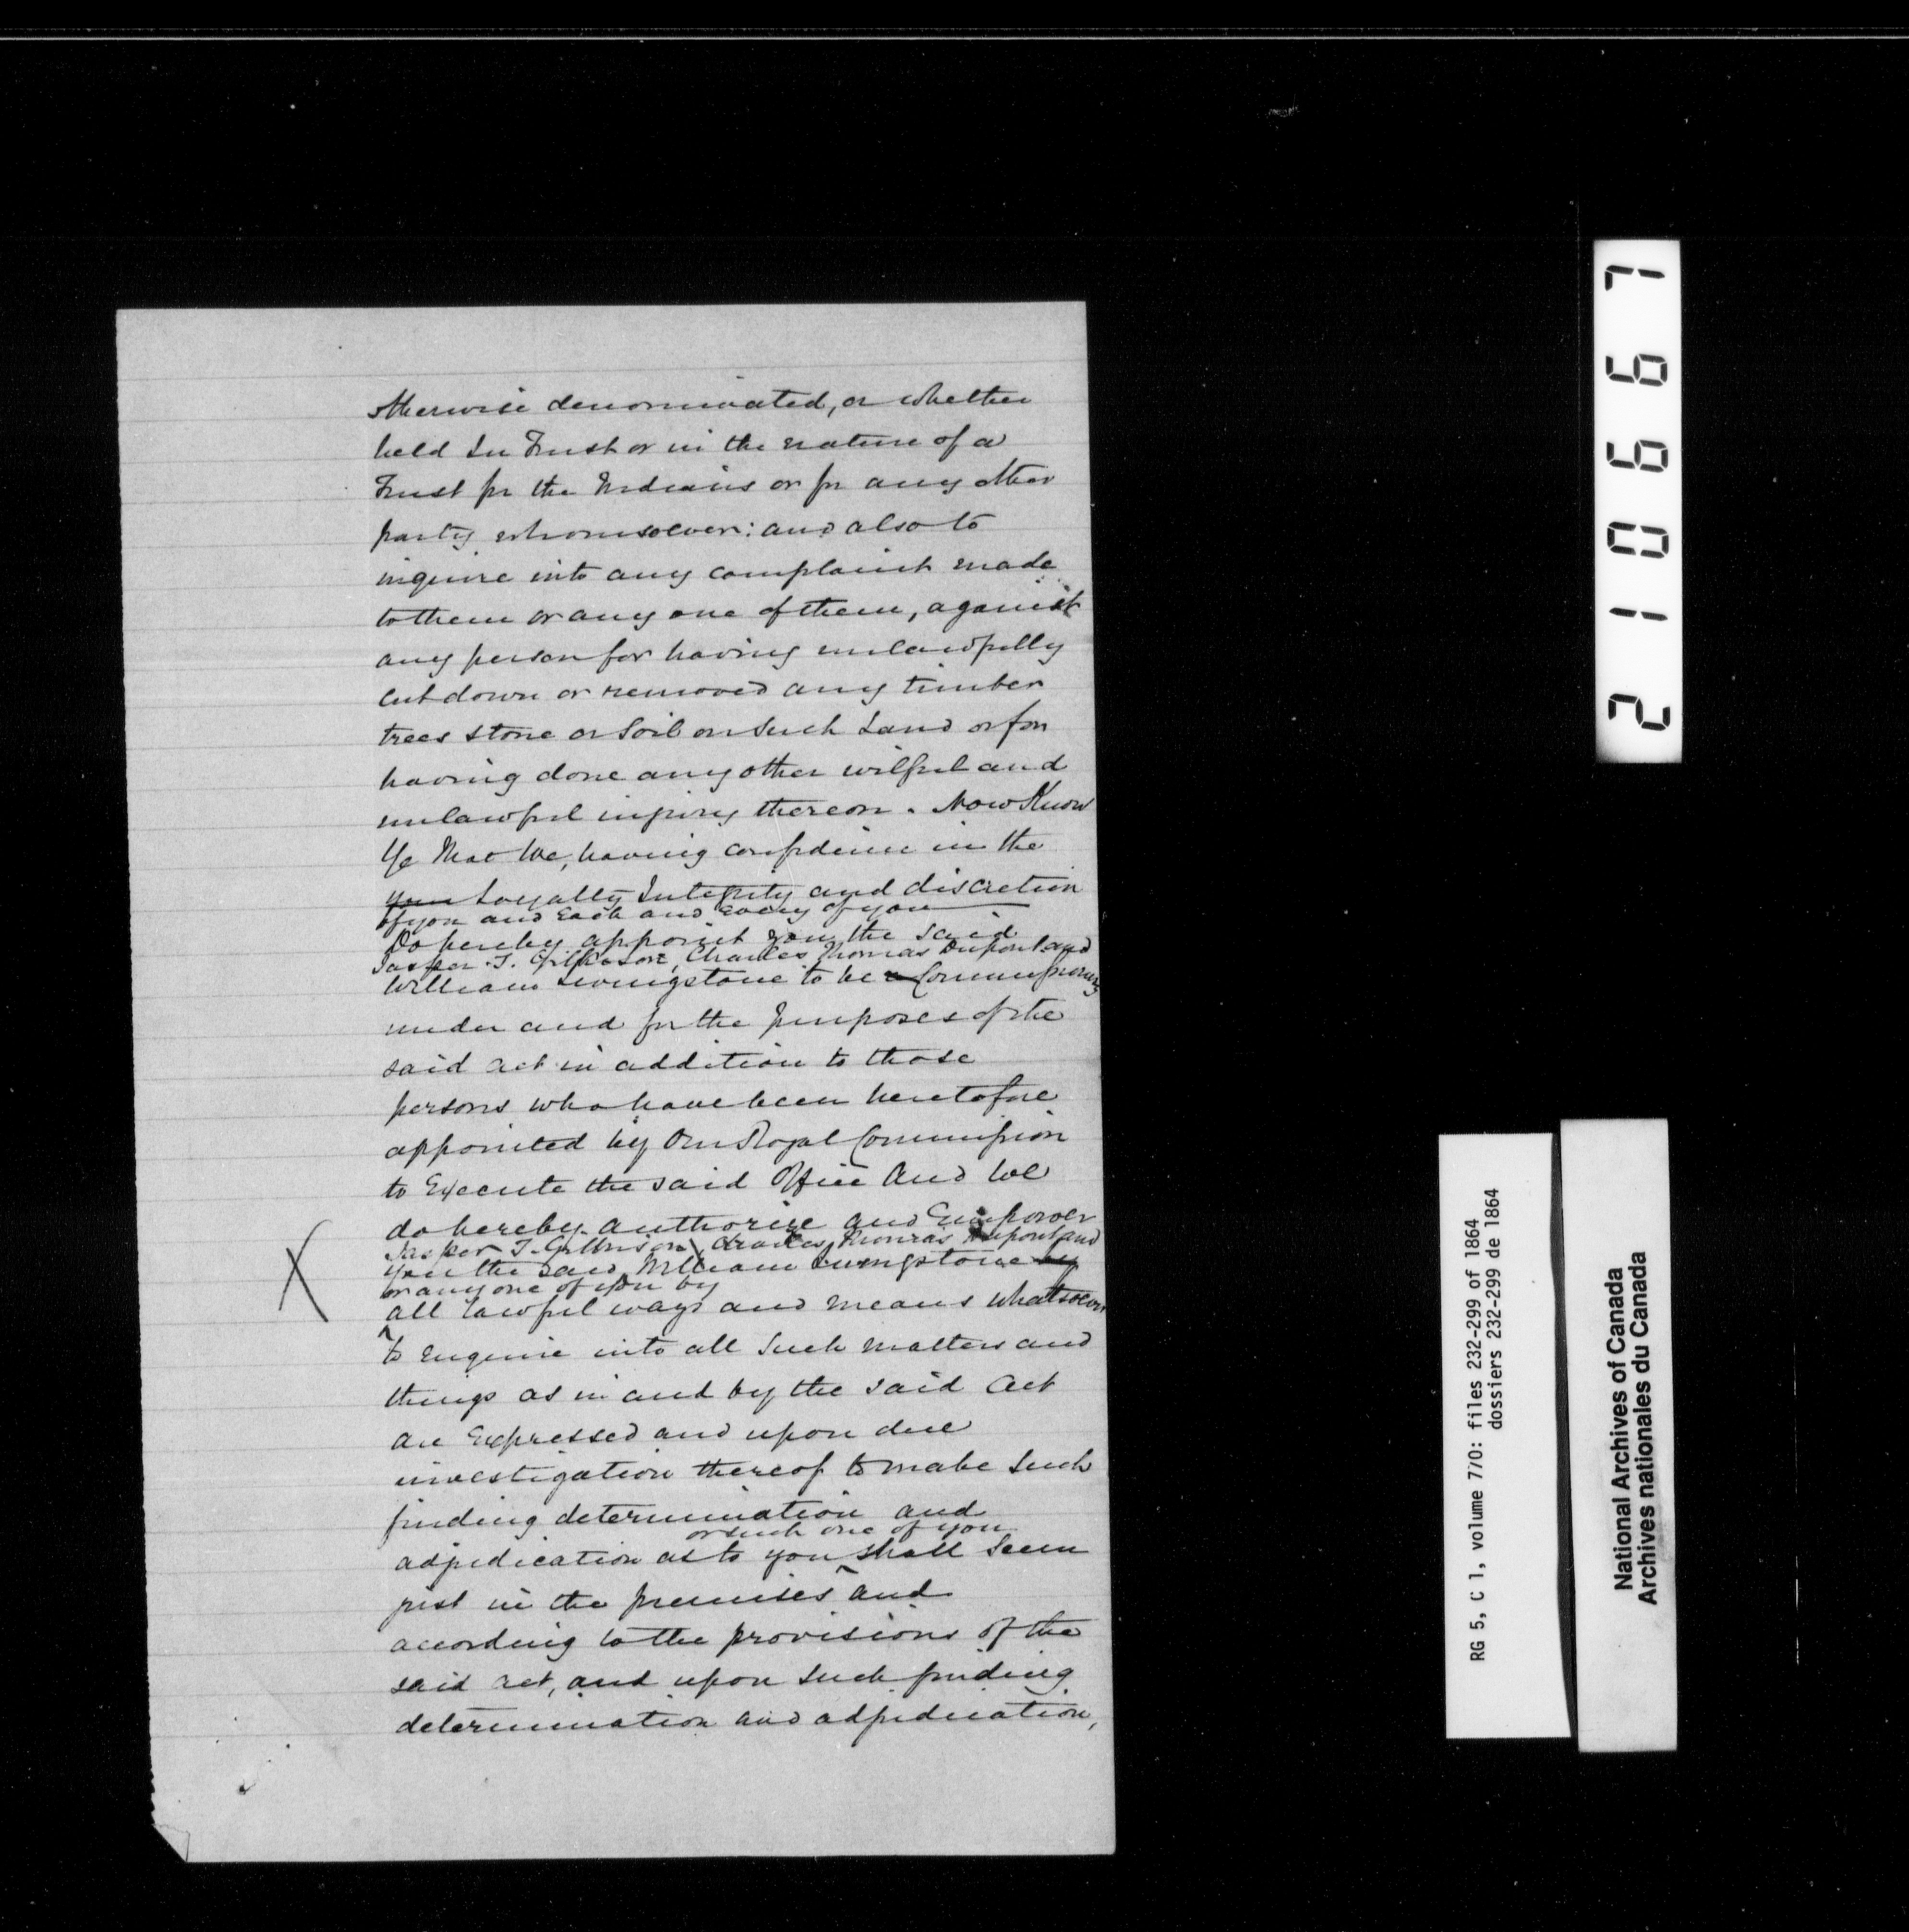 otherwise denominated, or whether
held In Trust or in the nature of a
Trust for the Indians or for any other
party whomsoever: and also to
inquire into any complaint made
to them or any one of them, against
any person for having unlawfully
cut down or removed any timber
trees stone or Soil on such Land or for
having done any other wilful and
unlawful injury thereon. Now Know
Ye That We, having confidence in the
your Loyalty Integrity and discretion
of you and Each and Every of you
Do hereby appoint you the said
Jasper T. Gilkison, Charles Thomas Dupont and
William Livingstone to be a Commissioners
under and for the purposes of the
said act in addition to those
persons who have been heretofore
appointed by Our Royal Commission
to Execute the said Office And We
do hereby authorize and Empower
Jasper T. Gilkison, Charles Thomas Dupont and
you the said William Livingstone by
or any one of you by
all lawful ways and means whatsoever
to enquire into all Such matters and
things as in and by the said Act
are Expressed and upon due
investigation thereof to make Such
finding determination and
or such one of you
adjudication as to you shall Seem
just in the premises and
according to the provisions of the
said act, and upon such finding
determination and adjudication,
X
210667
RG 5, C 1, volume 770: files 232-299 of 1864
dossiers 232-299 de 1864
National Archives of Canada
Archives nationales du Canada